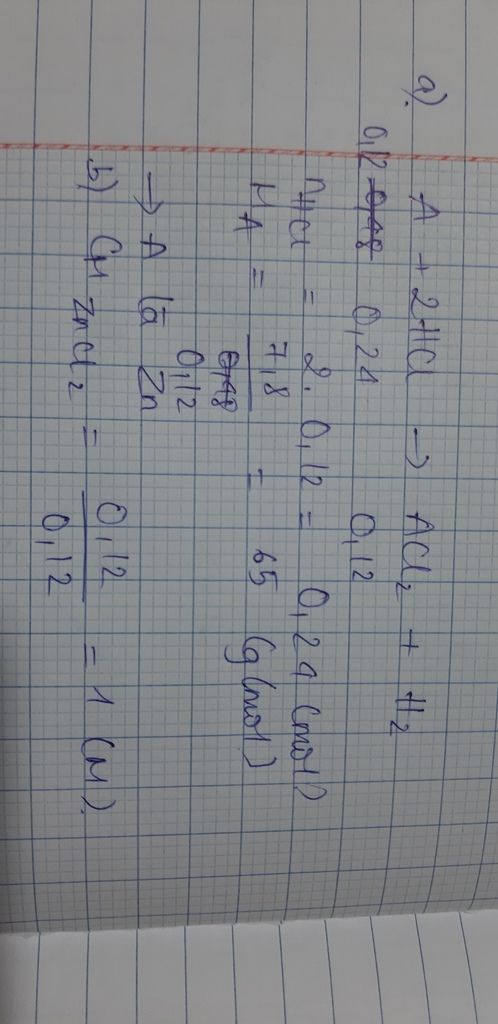 a). A + 2HCl → ACl₂ + H₂
0,12 0,24 0,12
nHCl = 2. 0,12 = 0,24 (mol)
MA = 7,8 / 0,12 = 65 (g/mol)
→ A là Zn
b) CM ZnCl₂ = 0,12 / 0,12 = 1 (M).